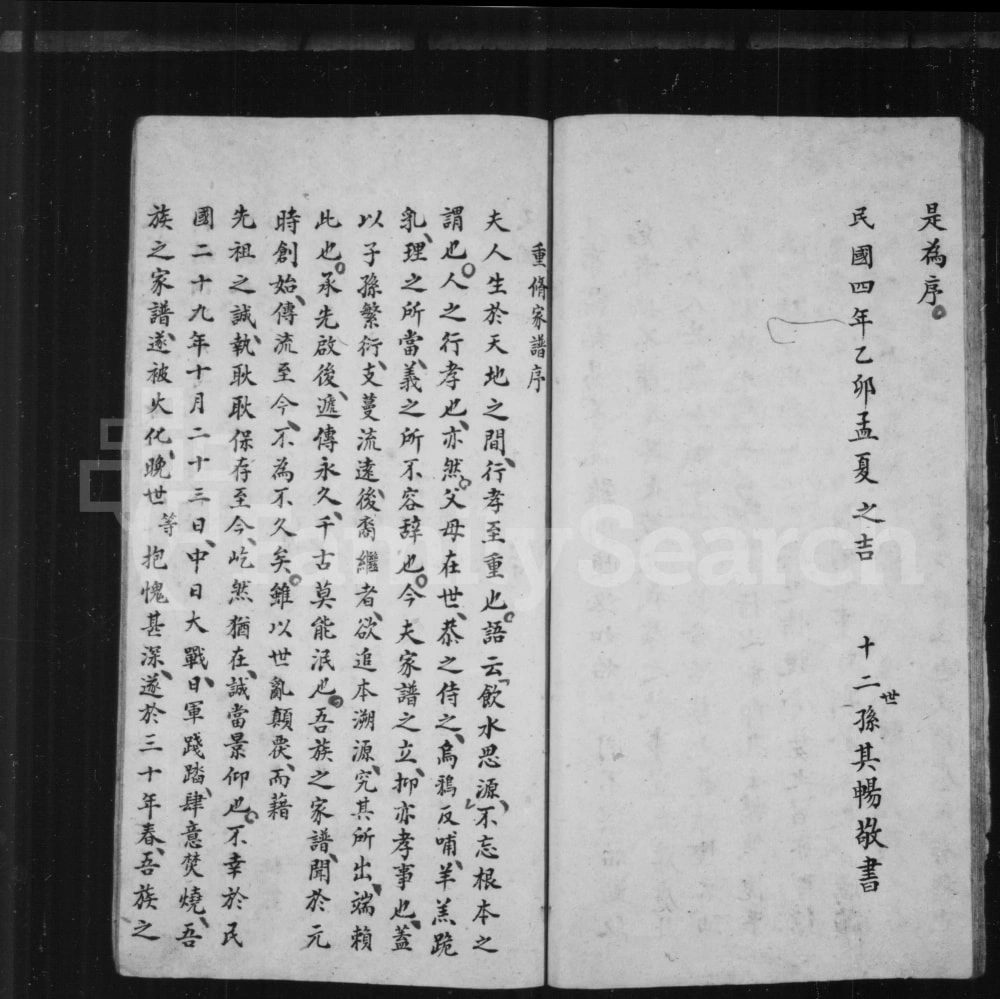 是為序。
民國四年乙卯孟夏之吉 十二世孫其暢敬書
重脩家譜序
夫人生於天地之間、行孝至重也。語云「飲水思源、不忘根本之
謂也。人之行孝也、亦然。父母在世、恭之侍之、烏鴉反哺、羊羔跪
乳、理之所當、義之所不容辞也。今夫家譜之立、抑亦孝事也、蓋
以子孫繁衍、支蔓流遠、後裔繼者、欲追本溯源、究其所出、端賴
此也。承先啟後、遞傳永久、千古莫能泯也。吾族之家譜、聞於元
時創始、傳流至今、不為不久矣。雖以世亂顛覆、而藉
先祖之誠執、耿耿保存至今、屹然猶在、誠當景仰也。不幸於民
國二十九年十月二十三日、中日大戰、日軍踐踏、肆意焚燒、吾
族之家譜、遂被火化、晚世等抱愧甚深、遂於三十年春、吾族之
FamilySearch